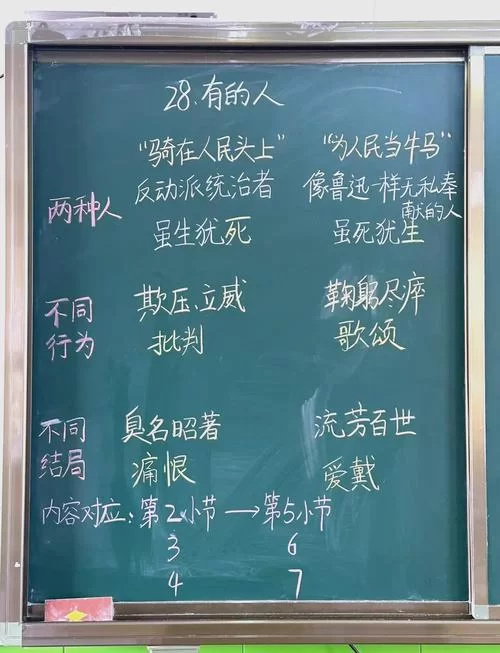 28.有的人
“骑在人民头上” “为人民当牛马”
两种人 反动派统治者 像鲁迅一样无私奉
献的人
虽生犹死 虽死犹生
不同 欺压、立威 鞠躬尽瘁
行为 批判 歌颂
不同 臭名昭著 流芳百世
结局 痛恨 爱戴
内容对应：第2小节→第5小节
3 6
4 7